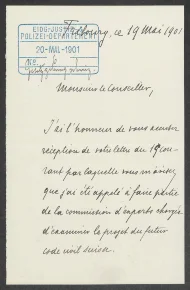 Fribourg, ce 19 Mai 1901
EIDG. JUSTIZ-
POLIZEI-DEPARTEMENT
20. MAI. 1901
No.
Monsieur le Conseiller,
J'ai l'honneur de vous accuser
réception de votre lettre du 17 cou-
rant par laquelle vous m'avisez
que j'ai été appelé à faire partie
de la commission d'experts chargée
d'examiner le projet du futur
code civil suisse.